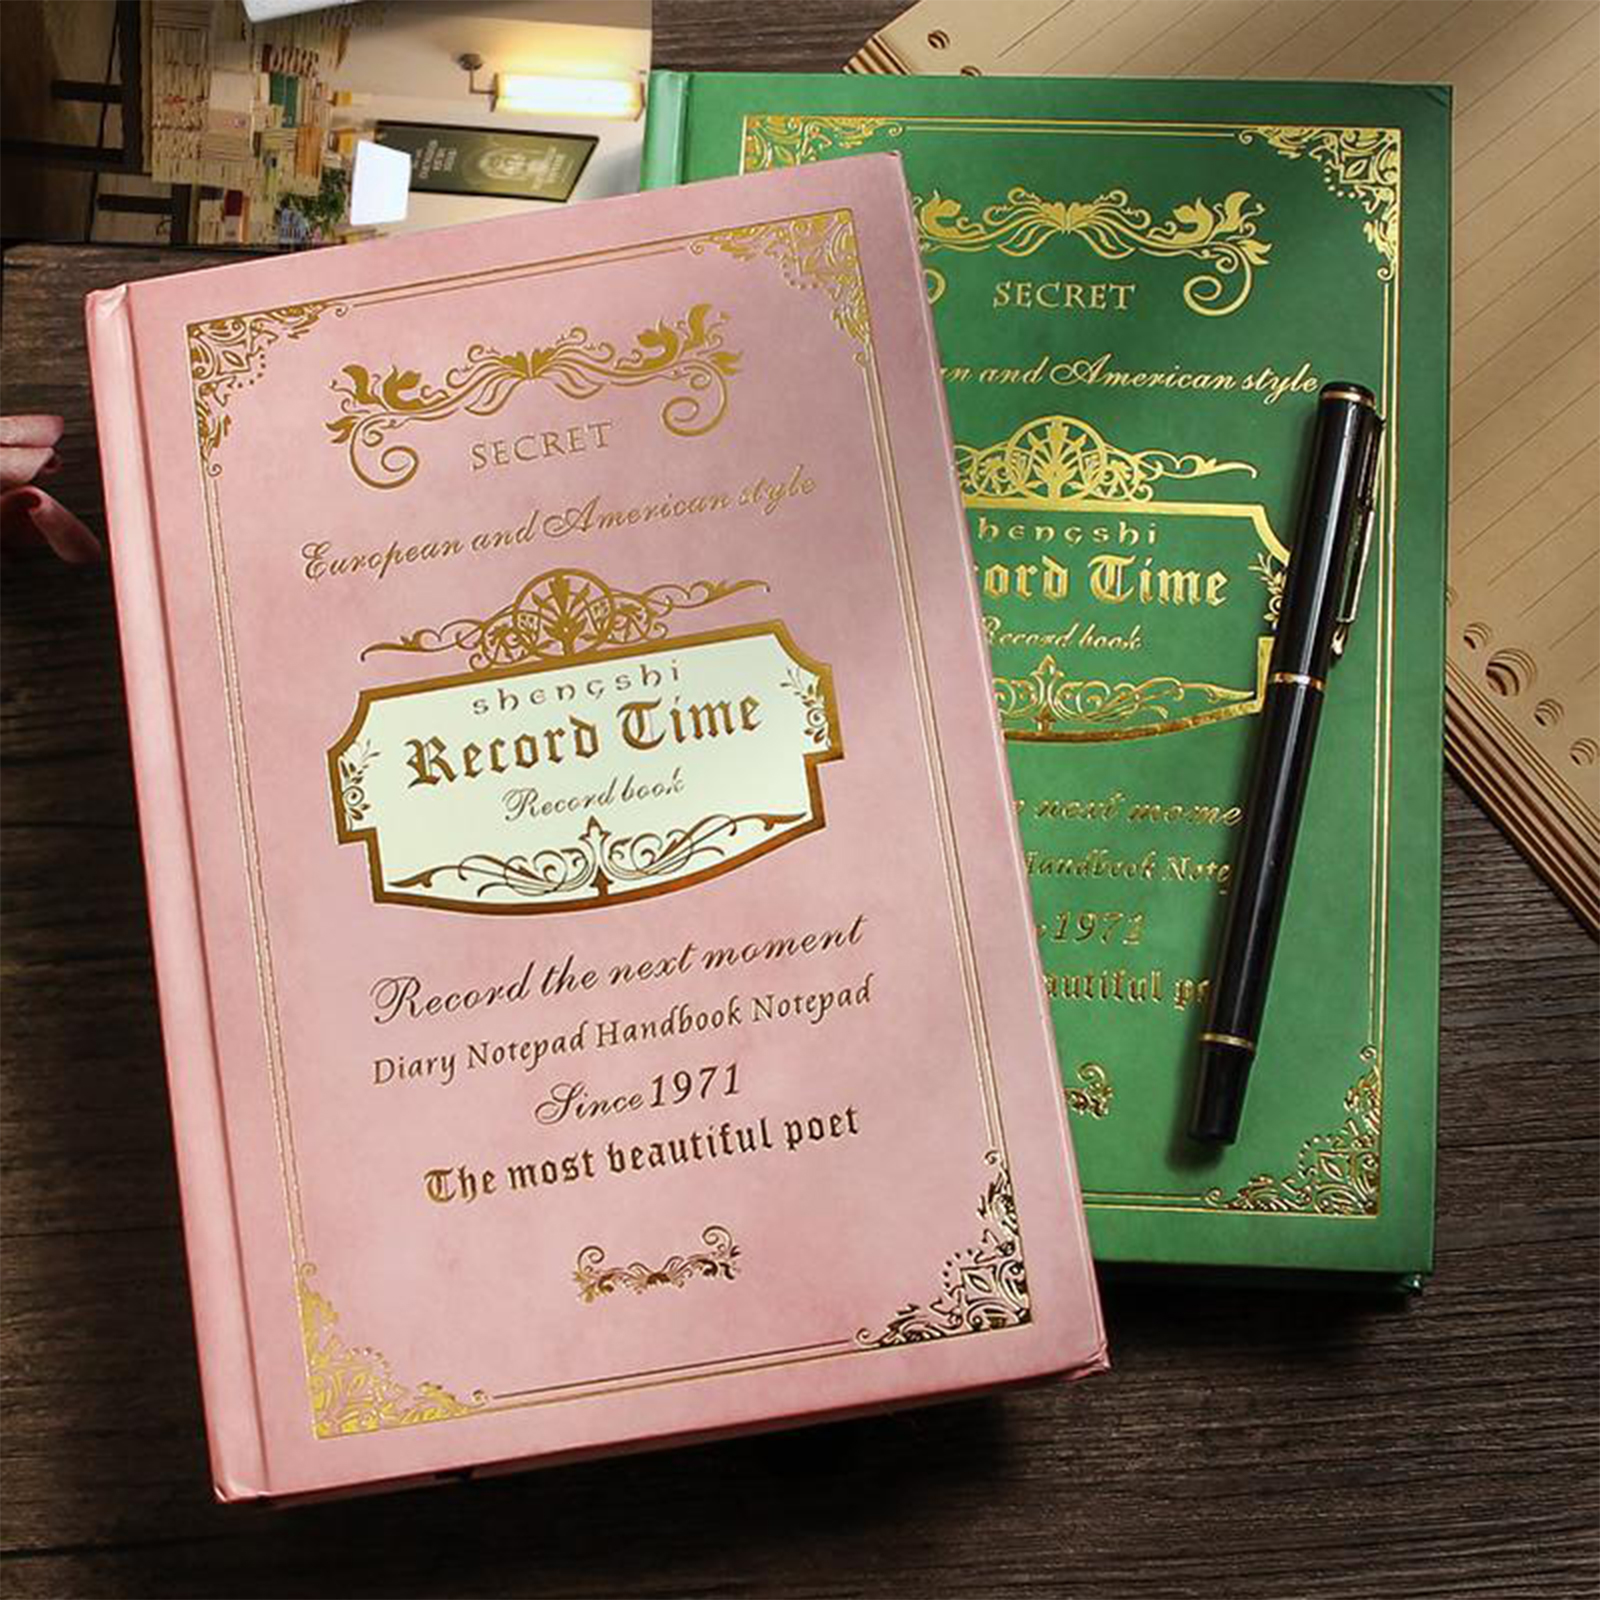 SECRET
European and American style
shengshi
Record Time
Record book
Record the next moment
Diary Notepad Handbook Notepad
Since 1971
The most beautiful poet
SECRET
and American style
Time
Record book
next
1971